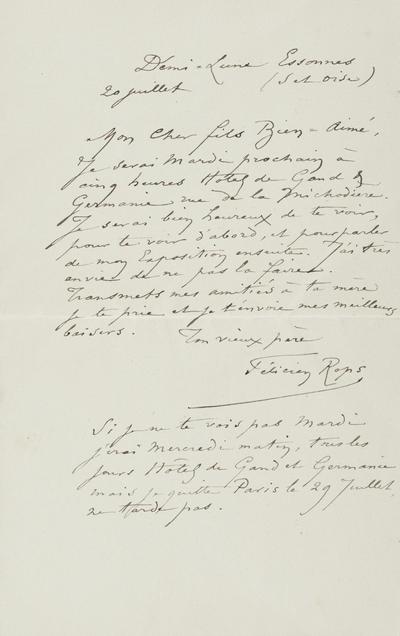 Demi-Lune Essonnes
20 juillet (S et Oise)
Mon Cher fils Bien-Aimé,
Je serai Mardi prochain à
cinq heures Hôtel de Gand &
Germanie rue de la Michodière.
Je serai bien heureux de te voir,
pour te voir d'abord, et pour parler
de mon Exposition ensuite. J'ai très
envie de ne pas la faire.
Transmets mes amitiés à ta mère
je te prie et je t'envoie mes meilleurs
baisers. Ton vieux père
Félicien Rops
Si je ne te vois pas Mardi
j'irai Mercredi matin, tous les
jours Hôtel de Gand et Germanie
mais je quitte Paris le 29 Juillet
ne tarde pas.